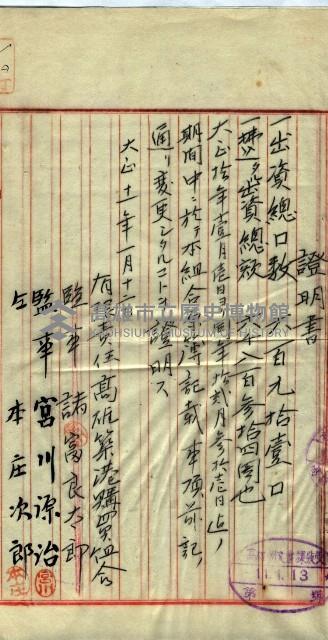 證明書
一出資總口數 百九拾壹口
一拂込出資總額 八百參拾四圓也
大正拾年壹月壹日ヨリ同年拾貳月參拾壹日迄ノ
期間中ニ於テ本組合 簿記載事項前記ノ
通リ変更シタルコトヲ證明ス
大正十一年一月十二日
有限責任高雄築港購買組合
監事 諸富良太郎
監事 宮川源治
仝 本庄次郎
高雄市立歷史博物館
KAOHSIUNG MUSEUM OF HISTORY
11.1.13
第 號